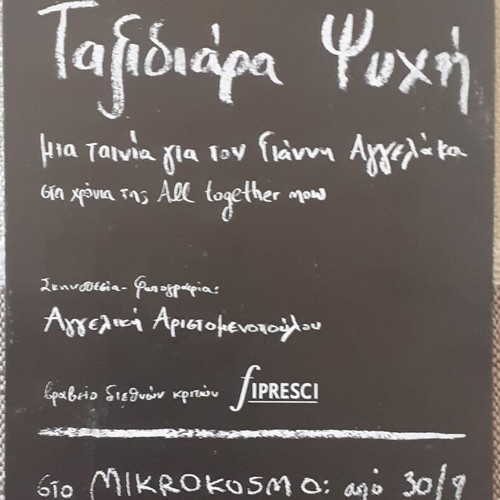 Ταξιδιάρα Ψυχή
μια ταινία για τον Γιάννη Αγγελάκα
στα χρόνια της All together now
Σκηνοθεσία - φωτογραφία:
Αγγελική Αριστομενοπούλου
βραβείο διεθνών κριτών FIPRESCI
στο MIKROKOSMO: από 30/9